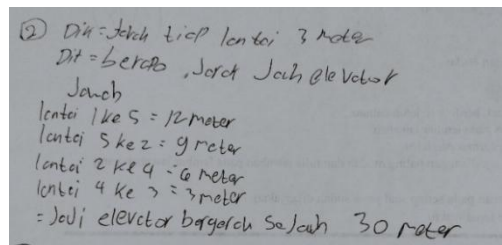 ② Dik = Jarak tiap lantai 3 meter
Dit = berapa Jarak Jauh elevator
Jawab
lantai 1 ke 5 = 12 meter
lantai 5 ke 2 = 9 meter
lantai 2 ke 4 = 6 meter
lantai 4 ke 3 = 3 meter
= Jadi elevator bergerak Sejauh 30 meter